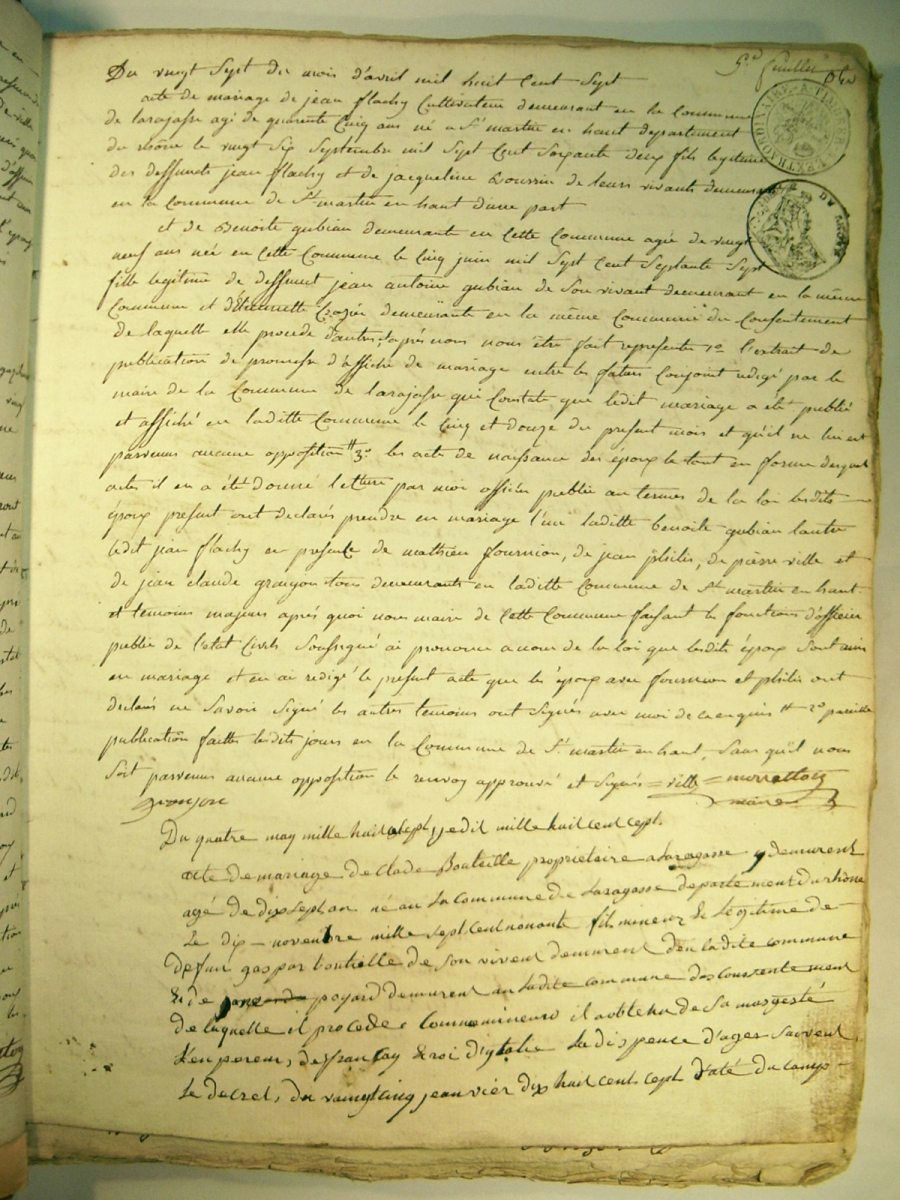 5.e feuillet
Du vingt Sept du mois d'avril mil huit Cent Sept
acte de mariage de jean flachy Cultivateur demeurant en la Commune
de larajasse agé de quarente Cinq ans né a St martin en haut departement
du rhône le vingt Six Septembre mil Sept Cent Soixante deux fils legitime
des deffunts jean flachy et de jacqueline Poussin de leurs vivants demeurants
en la Commune de St martin en haut d'une part
et de Benoite gubian demeurante en Cette Commune agée de vingt
neuf ans née en Cette Commune le Cinq juin mil Sept Cent Septante Sept
fille legitime de deffunt jean antoine gubian de Son vivant demeurant en la même
Commune et d'étiennette demeurante en la même Commune du Consentement
de laquelle elle procede d'autre aprés nous nous être fait representer 1o l'extrait de
publication de promesse d'affiche de mariage entre les faturs Conjoint redigé par le
maire de la Commune de larajasse qui Constate que ledit mariage a eté publié
et affiché en laditte Commune le Cinq et douze du present mois et qu'il ne lui est
parvenus aucune opposition # 3o les acte de naissance des époux le tout en forme desquels
actes il en a eté donné lecture par moi officier public au termes de la loi lesdits
époux present ont declarés prendre en mariage l'un laditte benoite gubian lautre
ledit jean flachy en presence de mathieu fournion, de jean philis, de pierre ville et
de jean claude granjon tous demeurants en laditte Commune de St martin en haut
et temoins majeurs aprés quoi nous maire de Cette Commune faisant les fonctions d'officier
public de l'etat Civils Soussigné ai prononcé au nom de la loi que lesdits époux Sont unis
en mariage et en ai redigé le present acte que les époux avec fournion et philis ont
declarés ne Savoir Signé les autres temoins ont Signés avec moi de ce enquis # 2o pareille
publication faittes lesdits jours en la Commune de St martin en haut Sans qu'il nous
Soit parvenus aucune opposition le renvoy approuvé et Signés = ville =
granjon maire
Du quatre may mille huit Sept, jedit mille huit cent cept.
acte de mariage de Clode Bouteille propriétaire a Laragasse y demeurent
agé de dix sept an né au La commune de Laragasse departement du rhône
Le dix - novenbre mille sept Cent nonante fils mineur & Legitime de
defun gaspar boutielle de son vivent demeurent den ladite commune
& de poyard demeurent au Ladite commune das Consente ment
de laquelle il procede. Comme mineur il aobtenu de Sa magesté
L'enpereur, des françay & roi d'ytalie La dispence d'ages Suivent
Le decret, du vaingt cinq jeanvier dix huit cent cept daté du camp